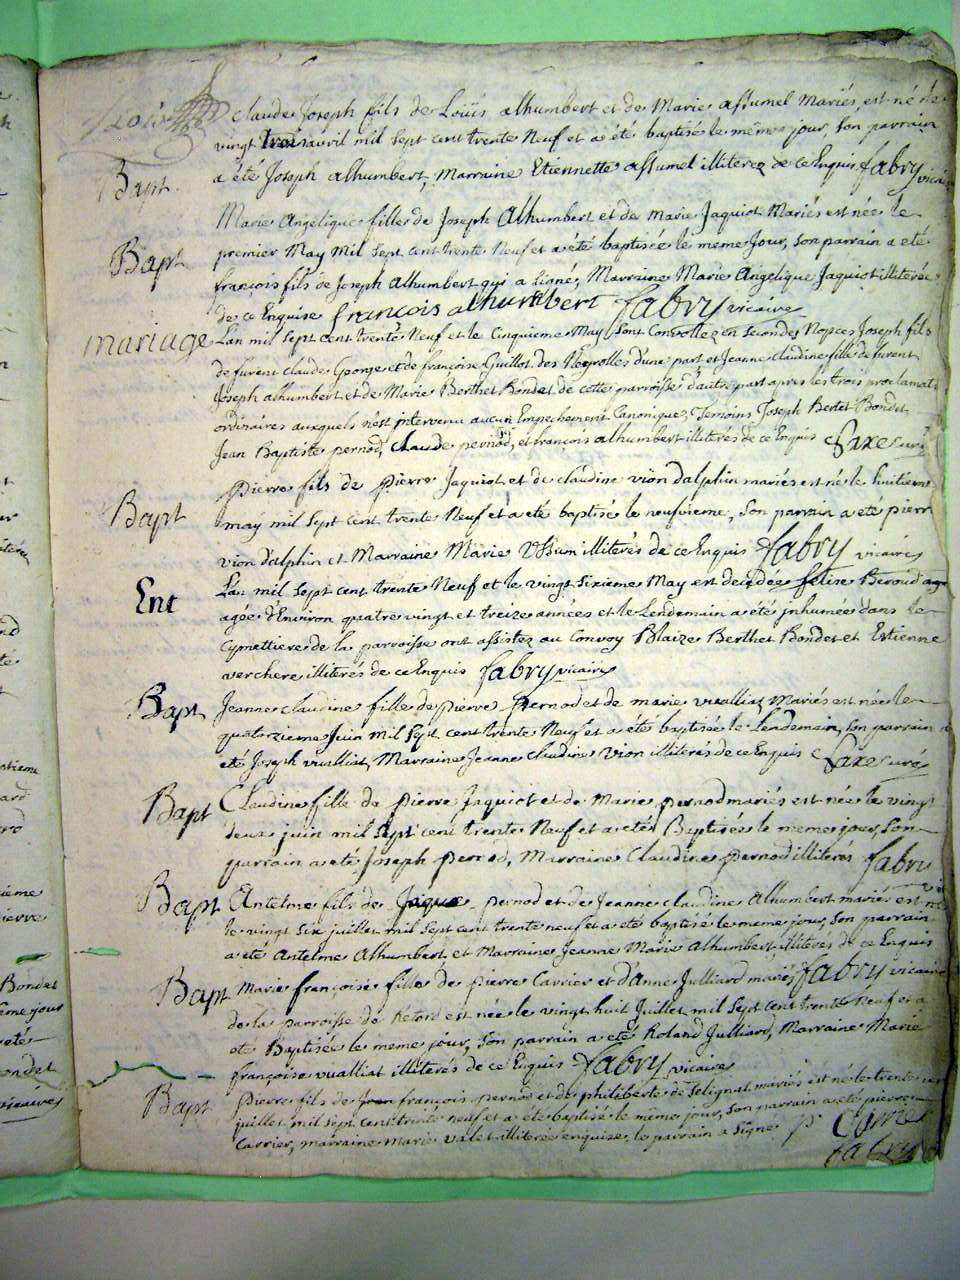 Claude Joseph fils de Loüis alhumbert et de Marie assumel Mariés, est né le
vingt trois avril mil sept cent trente Neuf et a été baptisé le même jour, Son parrain
Bapt a été Joseph alhumbert, Marraine Etiennette assumel illiterez de ce Enquis fabry vicaire
Marie Angelique fille de Joseph Alhumbert et de Marie Jaquiot Mariés est née le
Bapt premier May Mil Sept cent trente Neuf et a été baptisée le meme Jour, Son parrain a été
françois fils de Joseph Alhumbert qui a signé, Marraine Marie Angelique Jaquiot illiterée
de ce Enquise francois alhumbert fabry vicaire
mariage Lan mil Sept cent trente Neuf et le Cinquieme May Sont Convollez en Secondes Nopces Joseph fils
de furent Claude George et de françoise Guillot des Neyrolles d'une part et Jeanne claudine fille de furent
Joseph alhumbert et de Marie Berthet Bondet de cette parroisse d'autre part apres les trois proclamat.
ordinaires auxquels n'est intervenu aucun Empechement Canonique, Temoins Joseph Bertet Bondet
Jean Baptiste pernod, Claude pernod, et francois alhumbert illiterés de ce Enquis Saxe curé
Pierre fils de Pierre Jaquiot et de claudine vion dalphin mariés est né le huitieme
Bapt may mil Sept cent trente Neuf et a été baptisé le neufvieme, Son parrain a été pierre
vion dalphin et Marraine Marie illiterés de ce Enquis fabry vicaire
Ent Lan mil Sept cent trente Neuf et le vingt Sixieme May est decedee felise Beroud
agée d'Environ quatre vingt et treize années et le Lendemain a été inhumée dans le
Cymettiere de la parroisse ont assistez au Convoy Blaize Berthet Bondet et Estienne
verchere illiterés de ce Enquis fabry vicaire
Bapt Jeanne claudine fille de pierre Pernod et de marie vualliat Mariés est née le
quatorzieme Juin mil Sept cent trente Neuf et a été baptisée le Lendemain, Son parrain a
été Joseph vualliat, Marraine Jeanne claudine vion illiterés de ce Enquis Saxe curé
Bapt Claudine fille de Pierre Jaquiot et de Marie pernod mariés est née le vingt
deux juin mil Sept cent trente Neuf et a été Baptisée le meme jour, Son
parrain a été Joseph Pernod, Marraine Claudine pernod illiterés fabry
Bapt Antelme fils de Jaque pernod et de Jeanne claudine Alhumbert mariés est né
le vingt Six juillet mil Sept cent trente neuf et a été baptisé le meme jour, Son parrain
a été Antelme Alhumbert, et Marraine Jeanne Marie Alhumbert, illiterés de ce Enquis
Bapt Marie françoise fille de pierre Carrier et d'anne Julliard mariés fabry vicaire
de la parroisse de Retord est née le vingt huit Juillet mil Sept cent trente Neuf et a
été Baptisée le meme jour, Son parrain a été Roland Julliard, Marraine Marie
françoise vualliat illiterés de ce Enquis fabry vicaire
Bapt Pierre fils de francois pernod et de philiberte de Selignat mariés est né le trente
juillet mil Sept cent trente neuf et a été baptisé le même jour, Son parrain a été pierre
Carrier, marraine Marie valet illiterée enquise, le parrain a Signé P Carrier
fabry